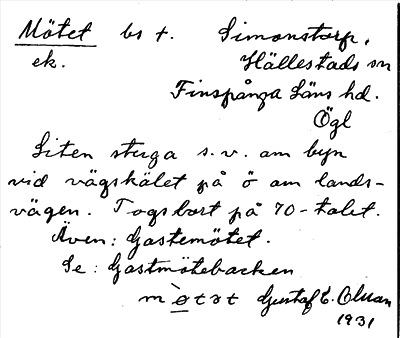 Mötet bs t. Simonstorp,
ek. Hällestads sn
Finspånga Läns hd.
Ögl
Liten stuga s.v. om byn
vid vägskälet på ö om lands-
vägen. Togs bort på 70-talet.
Även: Gastemötet.
Se: Gastmötebacken
m ø t ə t Gustaf E. Olsson
1931